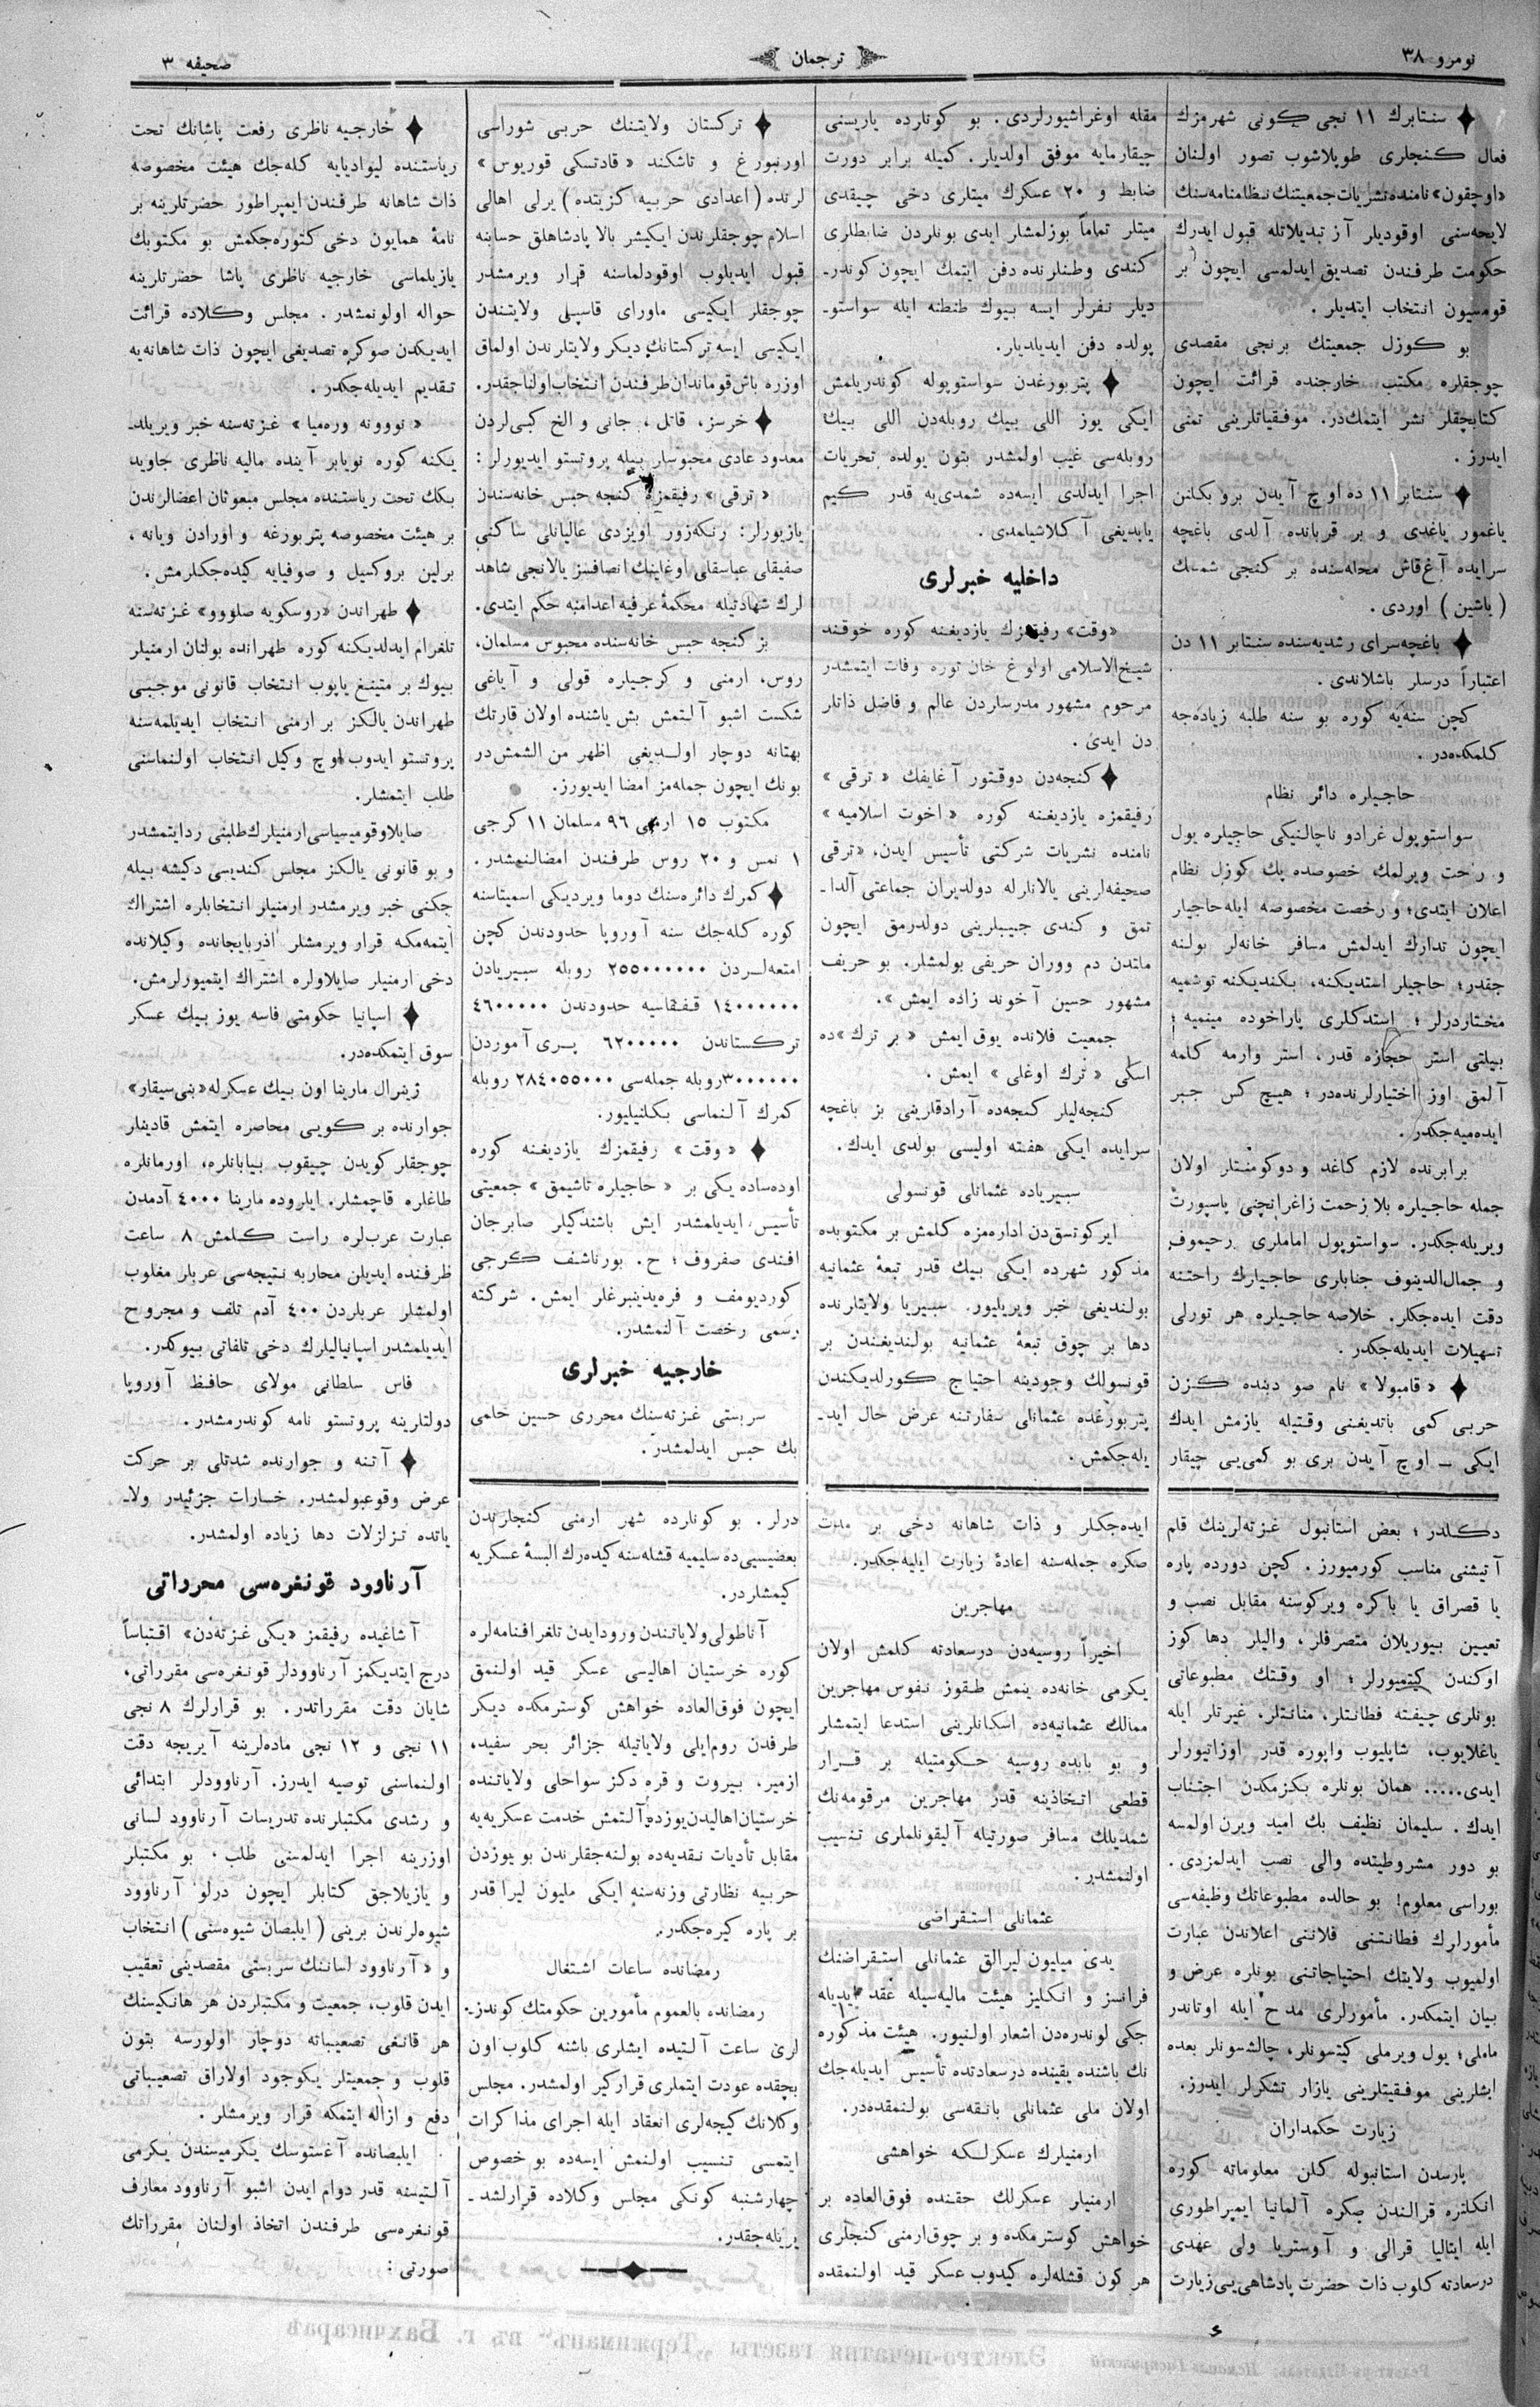 نومرو ٣٨
ترجمان
صحیفه ٣
سنتابرك ١١ نجی كونی شهرمزك
فعال كنجلری طوپلاشوب تصور اولنان
«اوچقون» نامنده نشریات جمعیتنك نظامنامه سنك
لایحه‌سنی اوقودیلر آز تبدیلاتله قبول ایدرك
حكومت طرفندن تصدیق ایدلمسی ایچون بر
قومسیون انتخاب ایتدیلر .
بو كوزل جمعیتك برنجی مقصدی
چوجقلره مكتب خارجنده قرائت ایچون
كتابچقلر نشر ایتمك‌در. موفقیاتلرینی تمنی
ایدرز .
سنتابر ١١ ده اوچ آیدن برو بكلنن
یاغمور یاغدی و بر قربانده آلدی باغچه
سرایده آغ‌قاش محله‌سنده بر كنجی شمشك
( یاشین ) اوردی .
باغچه‌سرای رشدیه‌سنده سنتابر ١١ دن
اعتباراً درسلر باشلاندی .
كچن سنه‌یه كوره بو سنه طلبه زیاده‌جه
كلمكده‌در .
حاجیلره دائر نظام
سواستوپول غرادو ناچالنیكی حاجیلره یول
و رخت ویرلمك خصوصده پك كوزل نظام
اعلان ایتدی؛ و رخصت مخصوصه ایله حاجیلر
ایچون تدارك ایدلمش مسافر خانه‌لر بولنه
جقدر؛ حاجیلر استدیكنه، بكندیكنه توشمیه
مختاردرلر ؛ استدكلری پاراخوده مینمیه ؛
بیلتی استر حجازه قدر، استر وارمه كلمه
آلمق اوز اختیارلرنده‌در ؛ هیچ كس جبر
ایده‌میه‌جكدر .
برابرنده لازم كاغد و دوكومنتلر اولان
جمله حاجیلره بلا زحمت زاغرانچنی پاسپورت
ویریله‌جكدر. سواستوپول اماملری رحیموف
و جمال‌الدینوف جنابلری حاجیلرك راحتنه
دقت ایده‌جكلر. خلاصه حاجیلره هر تورلی
تسهیلات ایدیله‌جكدر .
« قامبولا » نام صو دبنده كزن
حربی كمی باتدیغنی وقتیله یازمش ایدك
ایكی ــ اوچ آیدن بری بو كمی‌یی چیقار
مقله اوغراشیورلردی . بو كونلرده یاریسنی
چیقارمایه موفق اولدیلر. كمیله برابر دورت
ضابط و ٢٠ عسكرك میتلری دخی چیقدی
میتلر تماماً بوزلمشلر ایدی بونلردن ضابطلری
كندی وطنلرنده دفن ایتمك ایچون كوندر-
دیلر نفرلر ایسه بیوك طنطنه ایله سواستو-
پولده دفن ایدیلدیلر.
پتربورغدن سواستوپوله كوندریلمش
ایكی یوز اللی بیك روبله‌دن اللی بیك
روبله‌سی غیب اولمشدر بتون یولده تحریات
اجرا ایدلدی ایسه‌ده شمدی‌یه قدر كیم
یاپدیغی آكلاشیلمدی .
داخلیه خبرلری
«وقت» رفیقمزك یازدیغنه كوره خوقند
شیخ‌الاسلامی اولوغ خان توره وفات ایتمشدر
مرحوم مشهور مدرسلردن عالم و فاضل ذاتلر
دن ایدی .
كنجه‌دن دوقتور آغایفك « ترقی »
رفیقمزه یازدیغنه كوره « اخوت اسلامیه »
نامنده نشریات شركتی تأسیس ایدن، «ترقی
صحیفه‌لرینی یالانلرله دولدیران جماعتی آلدا-
تمق و كندی جیبلرینی دولدرمق ایچون
ملتدن دم ووران حریفی بولمشلر. بو حریف
مشهور حسین آخوند زاده ایمش ».
جمعیت فلانده یوق ایمش « بر ترك »ده
اسكی « ترك اوغلی » ایمش .
كنجه‌لیلر كنجه‌ده آرادقلرینی بز باغچه
سرایده ایكی هفته اولیسی بولدی ایدك.
سبیریاده عثمانلی قونسولی
ایركوتسق‌دن اداره‌مزه كلمش بر مكتوبده
مذكور شهرده ایكی بیك قدر تبعهٔ عثمانیه
بولندیغی خبر ویریلیور. سبیریا ولایتلرنده
دها بر چوق تبعهٔ عثمانیه بولندیغندن بر
قونسولك وجودینه احتیاج كورلدیكندن
پتربورغده عثمانلی سفارتنه عرض حال اید-
یله‌جكمش .
تركستان ولایتنك حربی شوراسی
اورنبورغ و تاشكند « قادتسكی قورپوس »
لرنده ( اعدادی حربیه كزیتده ) یرلی اهالی
اسلام چوجقلرندن ایكیشر بالا پادشاهلق حسابنه
قبول ایدیلوب اوقودلماسنه قرار ویرمشدر
چوجقلر ایكیسی ماورای قاسپی ولایتندن
ایكیسی ایسه تركستانك دیكر ولایتلرندن اولماق
اوزره باش قوماندان طرفندن انتخاب اولناجقدر.
خرسز، قاتل ، جانی و الخ كبی‌لردن
معدود عادی محبوسلر بیله پروتستو ایدیورلر :
« ترقی » رفیقمزه كنجه حبس خانه‌سندن
یازیورلر: زنكه‌زور اویزدی عالیانلی ساكنی
صفیقلی عباسقلی اوغلینك انصافسز یالانجی شاهد
لرك شهادتیله محكمهٔ عرفیه اعدامنه حكم ایتدی.
بز كنجه حبس خانه‌سنده محبوس مسلمان،
روس، ارمنی و كرجیلره قولی و آیاغی
شكست اشبو آلتمش بش یاشنده اولان قارتك
بهتانه دوچار اولدیغی اظهر من الشمش‌در
بونك ایچون جمله‌مز امضا ایدیورز.
مكتوب ١٥ ارمنی ٩٦ مسلمان ١١ كرجی
١ نمس و ٢٠ روس طرفندن امضالنمشدر.
كمرك دائره‌سنك دوما ویردیكی اسمیتاسنه
كوره كله‌جك سنه آوروپا حدودندن كچن
امتعه‌لردن ٢٥٥٠٠٠٠٠٠ روبله سبیریادن
١٤٠٠٠٠٠٠ قفقاسیه حدودندن ٤٦٠٠٠٠٠
تركستاندن ٦٢٠٠٠٠٠ پری آموردن
٣٠٠٠٠٠٠ روبله جمله‌سی ٢٨٤٠٥٥٠٠٠ روبله
كمرك آلنماسی بكلنیلیور.
« وقت » رفیقمزك یازدیغنه كوره
اوده‌ساده یكی بر « حاجیلره تاشیمق » جمعیتی
تأسیس ایدیلمشدر ایش باشندكیلر صابرجان
افندی صفروف ؛ ح. بورناشف كرجی
كوردیومف و فره‌یدینبرغلر ایمش. شركته
رسمی رخصت آلنمشدر.
خارجیه خبرلری
سربستی غزته‌سنك محرری حسین حلمی
بك حبس ایدلمشدر .
خارجیه ناظری رفعت پاشانك تحت
ریاستنده لیوادیایه كله‌جك هیئت مخصوصه
ذات شاهانه طرفندن ایمپراطور حضرتلرینه بر
نامهٔ همایون دخی كتوره‌جكمش بو مكتوبك
یازیلماسی خارجیه ناظری پاشا حضرتلرینه
حواله اولونمشدر . مجلس وكلاده قرائت
ایدیكدن صوكره تصدیغی ایچون ذات شاهانه‌یه
تقدیم ایدیله‌جكدر.
« نووونه وره‌میا » غزته‌سنه خبر ویریلد-
یكنه كوره نویابر آینده مالیه ناظری جاوید
بكك تحت ریاستنده مجلس مبعوثان اعضالرندن
بر هیئت مخصوصه پتربورغه و اورادن ویانه ،
برلین بروكسیل و صوفیایه كیده‌جكلرمش.
طهراندن «روسكویه صلووو» غزته‌سنه
تلغرام ایدلدیكنه كوره طهرانده بولنان ارمنیلر
بیوك بر متینغ یاپوب انتخاب قانونی موجبی
طهراندن یالكز بر ارمنی انتخاب ایدیلمه‌سنه
پروتستو ایدوب اوچ وكیل انتخاب اولنماسنی
طلب ایتمشلر.
صایلاو قومیسیاسی ارمنیلرك طلبنی رد ایتمشدر
و بو قانونی یالكز مجلس كندیسی دكیشه بیله
جكنی خبر ویرمشدر ارمنیلر انتخابلره اشتراك
ایتمه‌مكه قرار ویرمشلر اذربایجانده وكیلانده
دخی ارمنیلر صایلاولره اشتراك ایتمیورلرمش.
اسپانیا حكومتی فاسه یوز بیك عسكر
سوق ایتمكده‌در.
ژنرال مارینا اون بیك عسكرله «بنی‌سیقار»
جوارنده بر كویی محاصره ایتمش قادینلر
چوجقلر كویدن چیقوب بیابانلره، اورمانلره
طاغلره قاچمشلر. ایلروده مارینا ٤٠٠٠ آدمدن
عبارت عرب‌لره راست كلمش ٨ ساعت
ظرفنده ایدیلن محاربه نتیجه‌سی عربلر مغلوب
اولمشلر عربلردن ٤٠٠ آدم تلف و مجروح
ایدیلمشدر اسپانیالیلرك دخی تلفاتی بیوكدر.
فاس سلطانی مولای حافظ آوروپا
دولتلرینه پروتستو نامه كوندرمشدر .
آتنه و جوارنده شدتلی بر حركت
عرض وقوعبولمشدر. خسارات جزئیدر ولا-
یاتده تزلزلات دها زیاده اولمشدر.
آرناوود قونغره‌سی محرراتی
آشاغیده رفیقمز «یكی غزته‌دن» اقتباساً
درج ایتدیكمز آرناوودلر قونغره‌سی مقرراتی،
شایان دقت مقرراتدر. بو قرارلرك ٨ نجی
١١ نجی و ١٢ نجی ماده‌لرینه آیریجه دقت
اولنماسنی توصیه ایدرز. آرناوودلر ابتدائی
و رشدی مكتبلرنده تدریسات آرناوود لسانی
اوزرینه اجرا ایدلمسنی طلب . بو مكتبلر
و یازیلاجق كتابلر ایچون درلو آرناوود
شیوه‌لرندن برینی ( ایلبصان شیوه‌سنی ) انتخاب
و « آرناوود لساننك سربستی مقصدینی تعقیب
ایدن قلوب، جمعیت و مكتبلردن هر هانكیسنك
هر قانغی تصعیباته دوچار اولورسه بتون
قلوب و جمعیتلر یكوجود اولاراق تصعیباتی
دفع و ازاله ایتمكه قرار ویرمشلر .
ایلبصانده آغستوسك یكرمیسندن یكرمی
آلتیسنه قدر دوام ایدن اشبو آرناوود معارف
قونغره‌سی طرفندن اتخاذ اولنان مقرراتك
صورتی :
دكلدر ؛ بعض استانبول غزته‌لرینك قلم
آتیشنی مناسب كورمیورز . كچن دورده پاره
یا قصراق یا باكره ویركوسنه مقابل نصب و
تعیین بیوریلان متصرفلر، والیلر دها كوز
اوكندن كیتمیورلر ؛ او وقتك مطبوعاتی
بونلری چیفته فطانتلر، متانتلر، غیرتلر ایله
یاغلایوب، شاپلیوب واپوره قدر اوزاتیورلر
ایدی..... همان بونلره بكزمكدن اجتناب
ایدك . سلیمان نظیف بك امید ویرن اولمسه
بو دور مشروطیتده والی نصب ایدلمزدی .
بوراسی معلوم! بو حالده مطبوعاتك وظیفه‌سی
مأمورلرك فطانتنی فلاننی اعلاندن عبارت
اولمیوب ولایتك احتیاجاتنی بونلره عرض و
بیان ایتمكدر. مأمورلری مدح ایله اوتاندر
ماملی؛ یول ویرملی كیتسونلر، چالشسونلر بعده
ایشلرینی موفقیتلرینی یازار تشكرلر ایدرز.
زیارت حكمداران
پارسدن استانبوله كلن معلوماته كوره
انكلتره قرالندن صكره آلمانیا ایمپراطوری
ایله ایتالیا قرالی و آوستریا ولی عهدی
درسعادته كلوب ذات حضرت پادشاهی‌یی زیارت
ایده‌جكلر و ذات شاهانه دخی بر مدت
صكره جمله‌سنه اعادهٔ زیارت ایلیه‌جكدر.
مهاجرین
اخیراً روسیه‌دن درسعادته كلمش اولان
یكرمی خانه‌ده یتمش طقوز نفوس مهاجرین
ممالك عثمانیه‌ده اسكانلرینی استدعا ایتمشلر
و بو بابده روسیه حكومتیله بر قرار
قطعی اتخاذینه قدر مهاجرین مرقومه‌نك
شمدیلك مسافر صورتیله آلیقونلملری تنسیب
اولنمشدر .
عثمانلی استقراضی
یدی میلیون لیرالق عثمانلی استقراضنك
فرانسز و انكلیز هیئت مالیه‌سیله عقد ایدیله
جكی لوندره‌دن اشعار اولنیور. هیئت مذكوره
نك باشنده یقینده درسعادتده تأسیس ایدیله‌جك
اولان ملی عثمانلی بانقه‌سی بولنمقده‌در.
ارمنیلرك عسكرلكه خواهشی
ارمنیلر عسكرلك حقنده فوق‌العاده بر
خواهش كوسترمكده و بر چوق ارمنی كنجلری
هر كون قشله‌لره كیدوب عسكر قید اولنمقده
درلر. بو كونلرده شهر ارمنی كنجلرندن
بعضیسی‌ده سلیمیه قشله‌سنه كیده‌رك البسهٔ عسكریه
كیمشلردر.
آناطولی ولایاتندن ورود ایدن تلغرافنامه‌لره
كوره خرستیان اهالیسی عسكر قید اولنمق
ایچون فوق‌العاده خواهش كوسترمكده دیكر
طرفدن روم‌ایلی ولایاتیله جزائر بحر سفید،
ازمیر، بیروت و قره دكز سواحلی ولایاتنده
خرستیان اهالیدن یوزده آلتمش خدمت عسكریه‌یه
مقابل تأدیات نقدیه‌ده بولنه‌جقلرندن بو یوزدن
حربیه نظارتی وزنه‌سنه ایكی ملیون لیرا قدر
بر پاره كیره‌جكدر.
رمضانده ساعات اشتغال
رمضانده بالعموم مأمورین حكومتك كوندز-
لری ساعت آلتیده ایشلری باشنه كلوب اون
بچقده عودت ایتملری قراركیر اولمشدر. مجلس
وكلانك كیجه‌لری انعقاد ایله اجرای مذاكرات
ایتمسی تنسیب اولنمش ایسه‌ده بو خصوص
چهارشنبه كونكی مجلس وكلاده قرارلشد-
یریله‌جقدر.